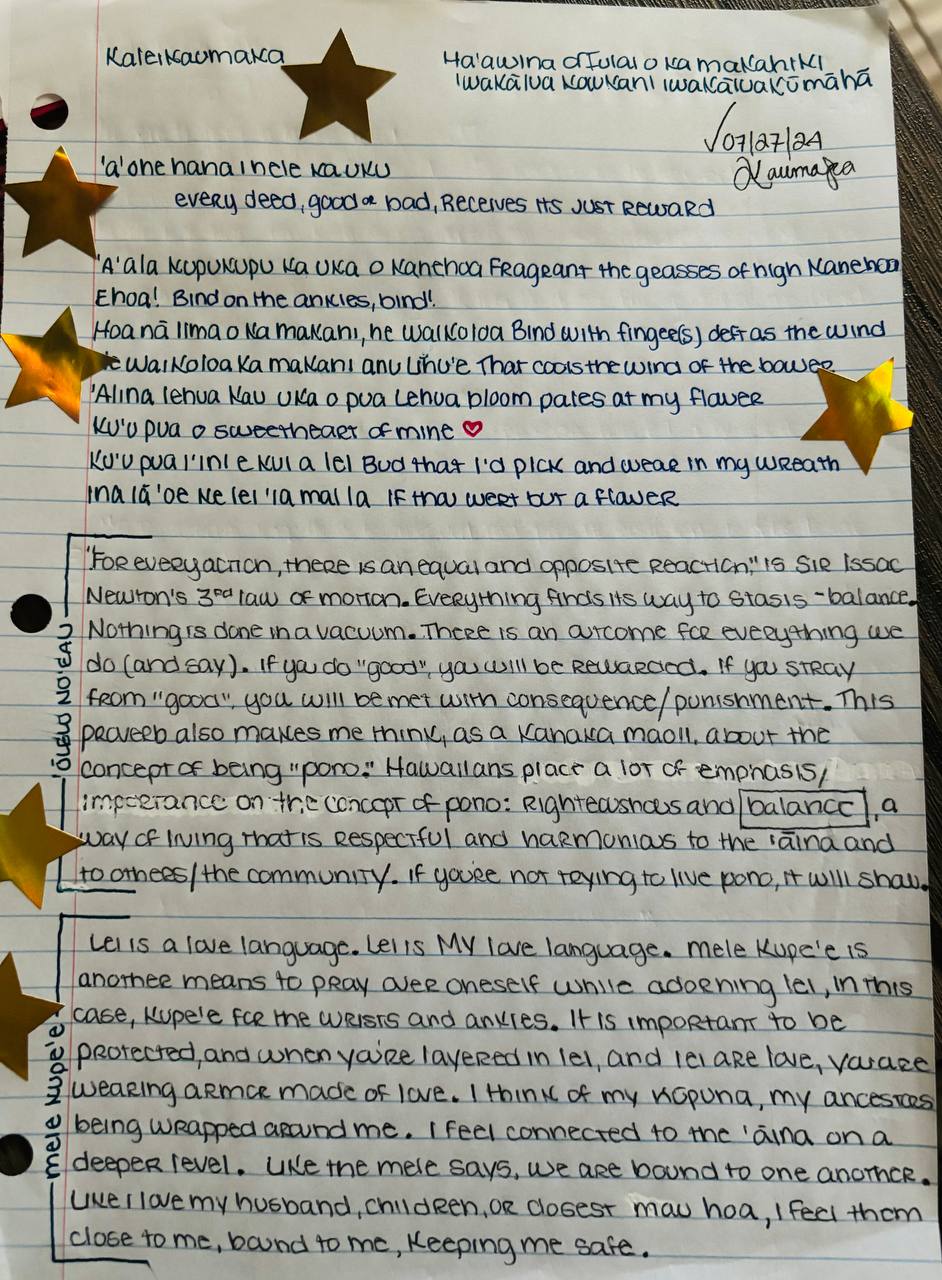 Kaleikaumaka
Ha'awina o Iulai o ka makahiki
iwakālua kaukani iwakāluakūmāhā
√07/27/24
Kaumaka
'a'ohe hana i nele ka uku
every deed, good or bad, receives its just reward
'A'ala kupukupu ka uka o Kanehoa Fragrant the grasses of high Kanehoa
Ehoa! Bind on the ankles, bind!
Hoa nā lima o ka makani, he Waikoloa Bind with finger(s) deft as the wind
He Waikoloa ka makani anu Līhu'e That cools the wind of the bower
'Alina lehua kau uka o pua Lehua bloom pales at my flower
Ku'u pua o sweetheart of mine ♥
Ku'u pua i'ini e kui a lei Bud that I'd pick and wear in my wreath
Ina iā 'oe ke lei 'ia mai la If thou wert but a flower
'ōlelo no'eau
"For every action, there is an equal and opposite reaction," is Sir Issac
Newton's 3rd law of motion. Everything finds its way to stasis - balance.
Nothing is done in a vacuum. There is an outcome for everything we
do (and say). If you do "good", you will be rewarded. If you stray
from "good", you will be met with consequence/punishment. This
proverb also makes me think, as a Kanaka maoli, about the
concept of being "pono." Hawaiians place a lot of emphasis/
importance on the concept of pono: righteousness and balance, a
way of living that is respectful and harmonious to the 'āina and
to others/the community. If you're not trying to live pono, it will show.
mele kupe'e
Lei is a love language. Lei is MY love language. Mele Kupe'e is
another means to pray over oneself while adorning lei, in this
case, kupe'e for the wrists and ankles. It is important to be
protected, and when you're layered in lei, and lei are love, you are
wearing armor made of love. I think of my kūpuna, my ancestors
being wrapped around me. I feel connected to the 'āina on a
deeper level. Like the mele says, we are bound to one another.
Like I love my husband, children, or closest mau hoa, I feel them
close to me, bound to me, keeping me safe.